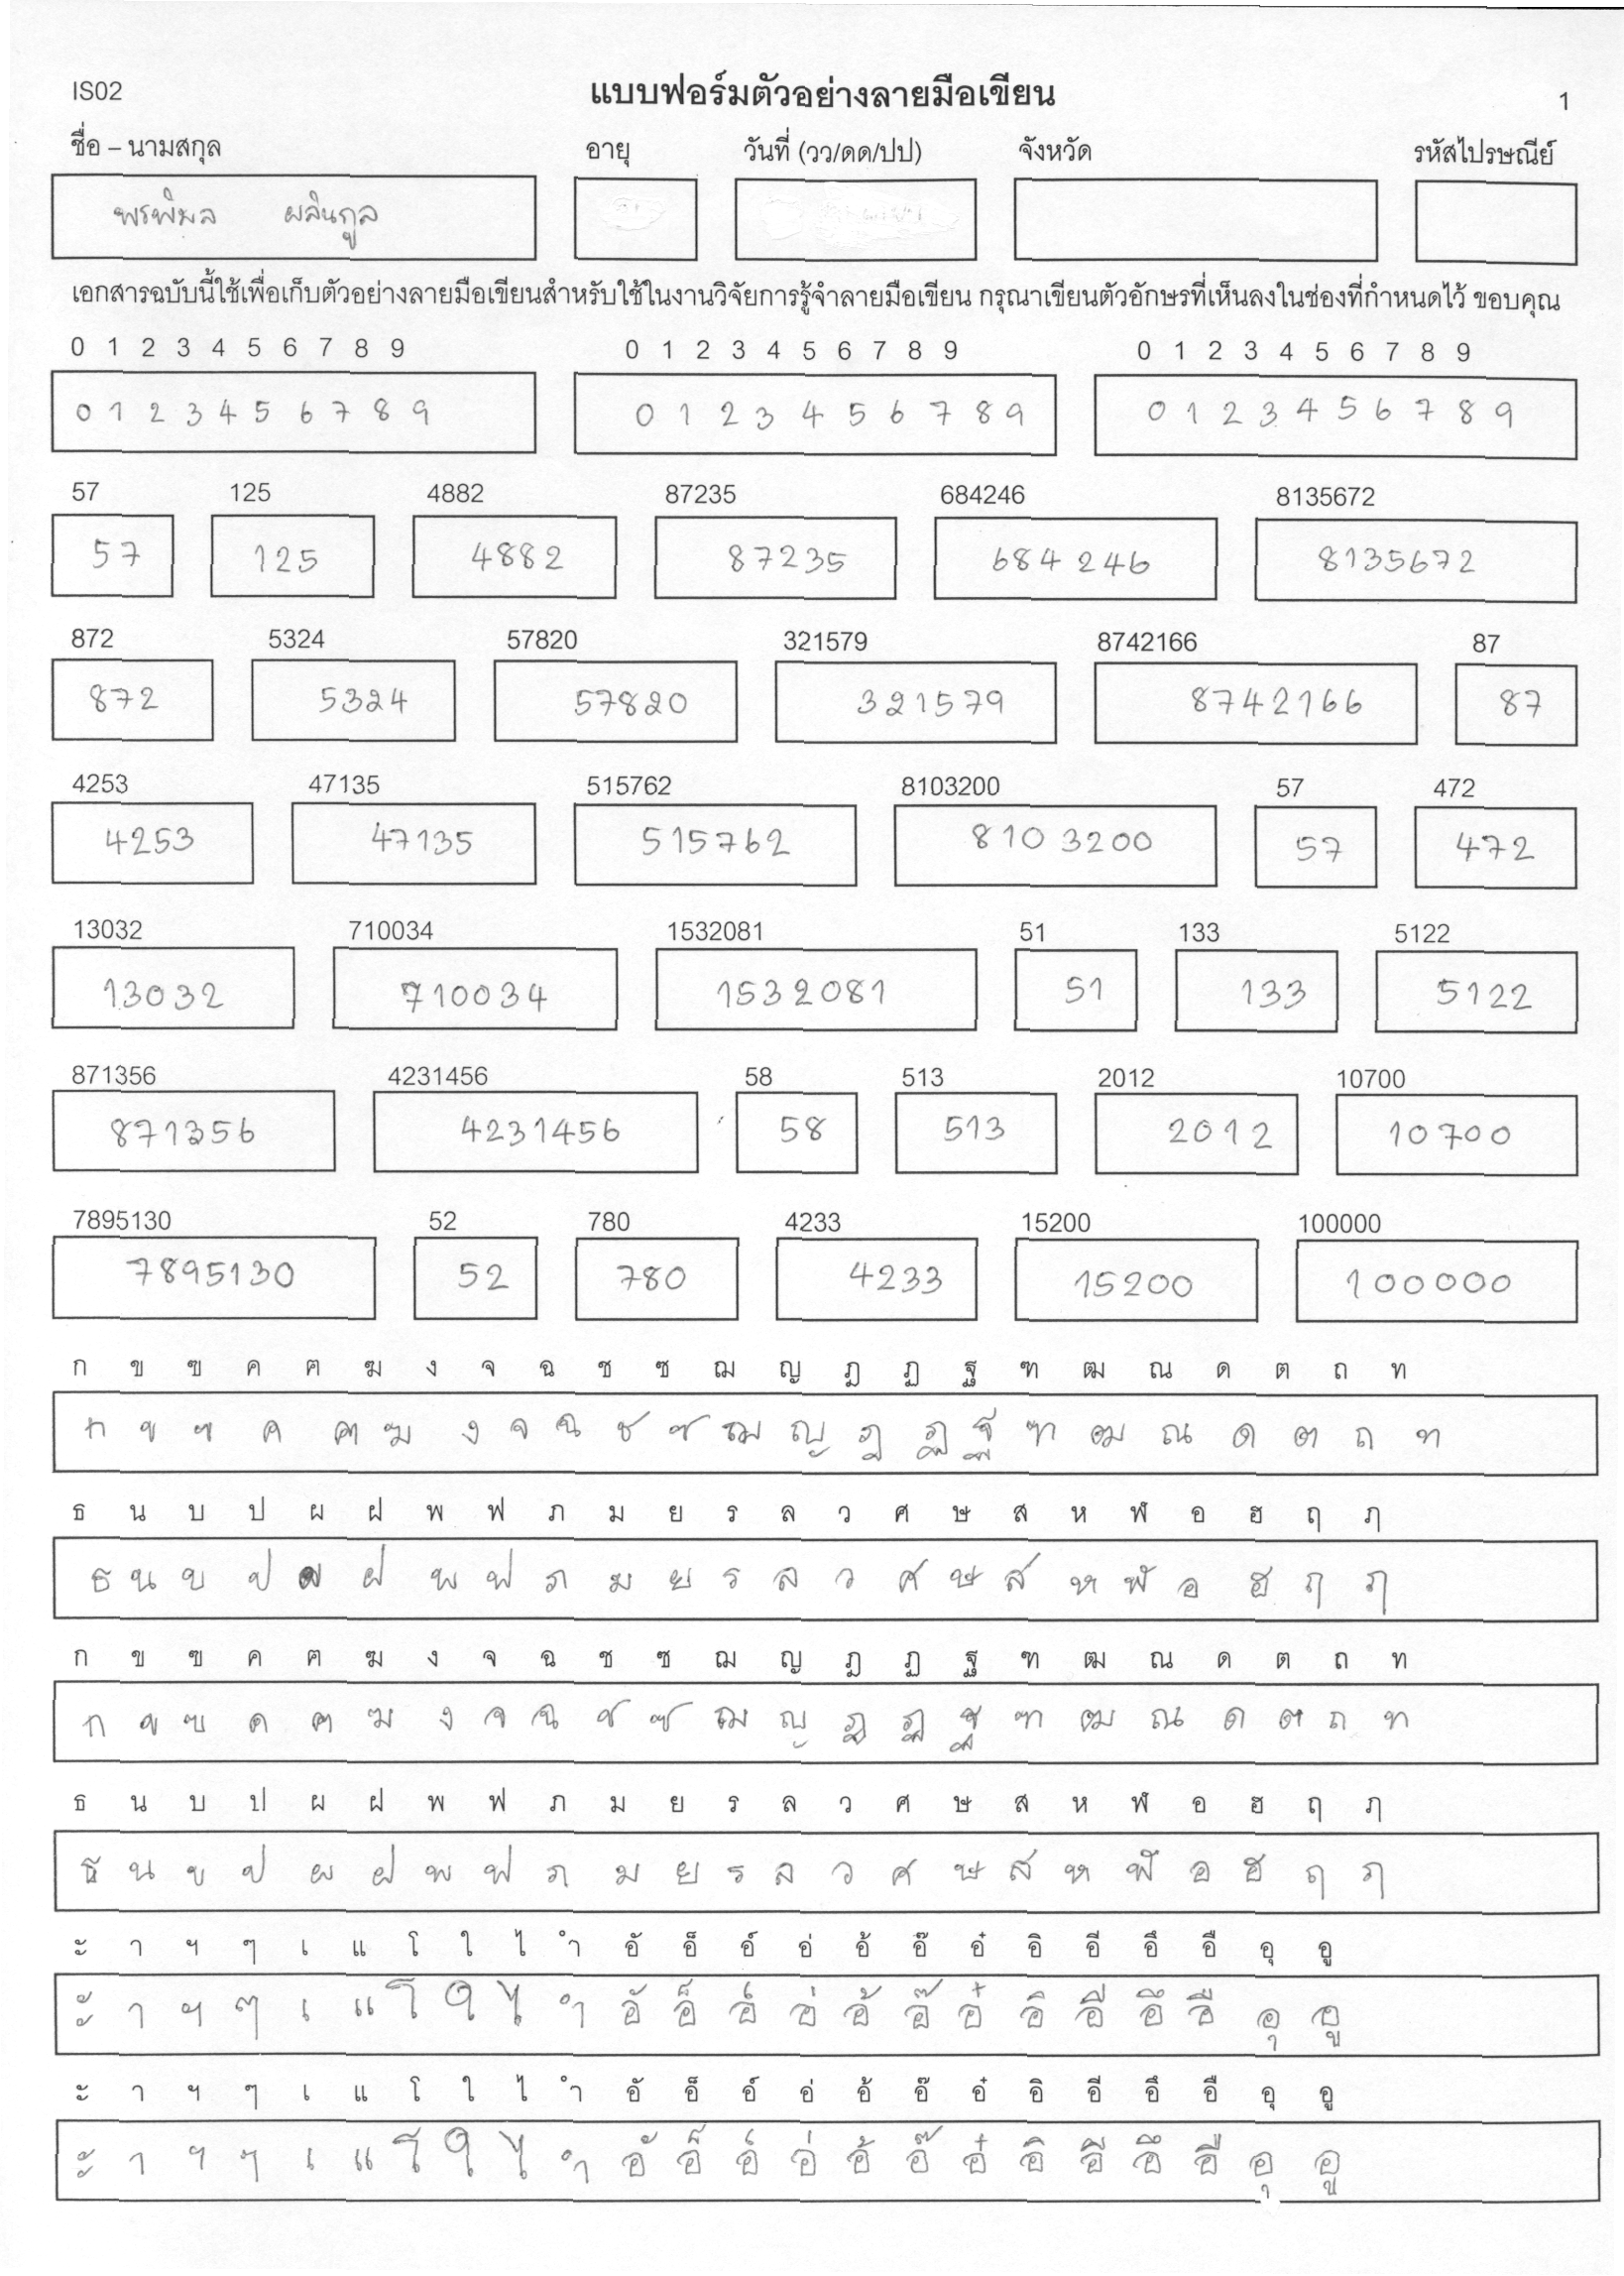 IS02 แบบฟอร์มตัวอย่างลายมือเขียน 1
ชื่อ – นามสกุล อายุ วันที่ (วว/ดด/ปป) จังหวัด รหัสไปรษณีย์
พรพิมล ผลินกูล
เอกสารฉบับนี้ใช้เพื่อเก็บตัวอย่างลายมือเขียนสำหรับใช้ในงานวิจัยการรู้จำลายมือเขียน กรุณาเขียนตัวอักษรที่เห็นลงในช่องที่กำหนดไว้ ขอบคุณ
0 1 2 3 4 5 6 7 8 9 0 1 2 3 4 5 6 7 8 9 0 1 2 3 4 5 6 7 8 9
0 1 2 3 4 5 6 7 8 9 0 1 2 3 4 5 6 7 8 9 0 1 2 3 4 5 6 7 8 9
57 125 4882 87235 684246 8135672
57 125 4882 87235 684246 8135672
872 5324 57820 321579 8742166 87
872 5324 57820 321579 8742166 87
4253 47135 515762 8103200 57 472
4253 47135 515762 8103200 57 472
13032 710034 1532081 51 133 5122
13032 710034 1532081 51 133 5122
871356 4231456 58 513 2012 10700
871356 4231456 58 513 2012 10700
7895130 52 780 4233 15200 100000
7895130 52 780 4233 15200 100000
ก ข ฃ ค ฅ ฆ ง จ ฉ ช ซ ฌ ญ ฎ ฏ ฐ ฑ ฒ ณ ด ต ถ ท
ก ข ฃ ค ฅ ฆ ง จ ฉ ช ซ ฌ ญ ฎ ฏ ฐ ฑ ฒ ณ ด ต ถ ท
ธ น บ ป ผ ฝ พ ฟ ภ ม ย ร ล ว ศ ษ ส ห ฬ อ ฮ ฤ ฦ
ธ น บ ป ผ ฝ พ ฟ ภ ม ย ร ล ว ศ ษ ส ห ฬ อ ฮ ฤ ฦ
ก ข ฃ ค ฅ ฆ ง จ ฉ ช ซ ฌ ญ ฎ ฏ ฐ ฑ ฒ ณ ด ต ถ ท
ก ข ฃ ค ฅ ฆ ง จ ฉ ช ซ ฌ ญ ฎ ฏ ฐ ฑ ฒ ณ ด ต ถ ท
ธ น บ ป ผ ฝ พ ฟ ภ ม ย ร ล ว ศ ษ ส ห ฬ อ ฮ ฤ ฦ
ธ น บ ป ผ ฝ พ ฟ ภ ม ย ร ล ว ศ ษ ส ห ฬ อ ฮ ฤ ฦ
ะ า ฯ ๆ เ แ โ ใ ไ ำ อั อ็ อ์ อ่ อ้ อ๊ อ๋ อิ อี อึ อื อุ อู
ะ า ฯ ๆ เ แ โ ใ ไ ำ อั อ็ อ์ อ่ อ้ อ๊ อ๋ อิ อี อึ อื อุ อู
ะ า ฯ ๆ เ แ โ ใ ไ ำ อั อ็ อ์ อ่ อ้ อ๊ อ๋ อิ อี อึ อื อุ อู
ะ า ฯ ๆ เ แ โ ใ ไ ำ อั อ็ อ์ อ่ อ้ อ๊ อ๋ อิ อี อึ อื อุ อู